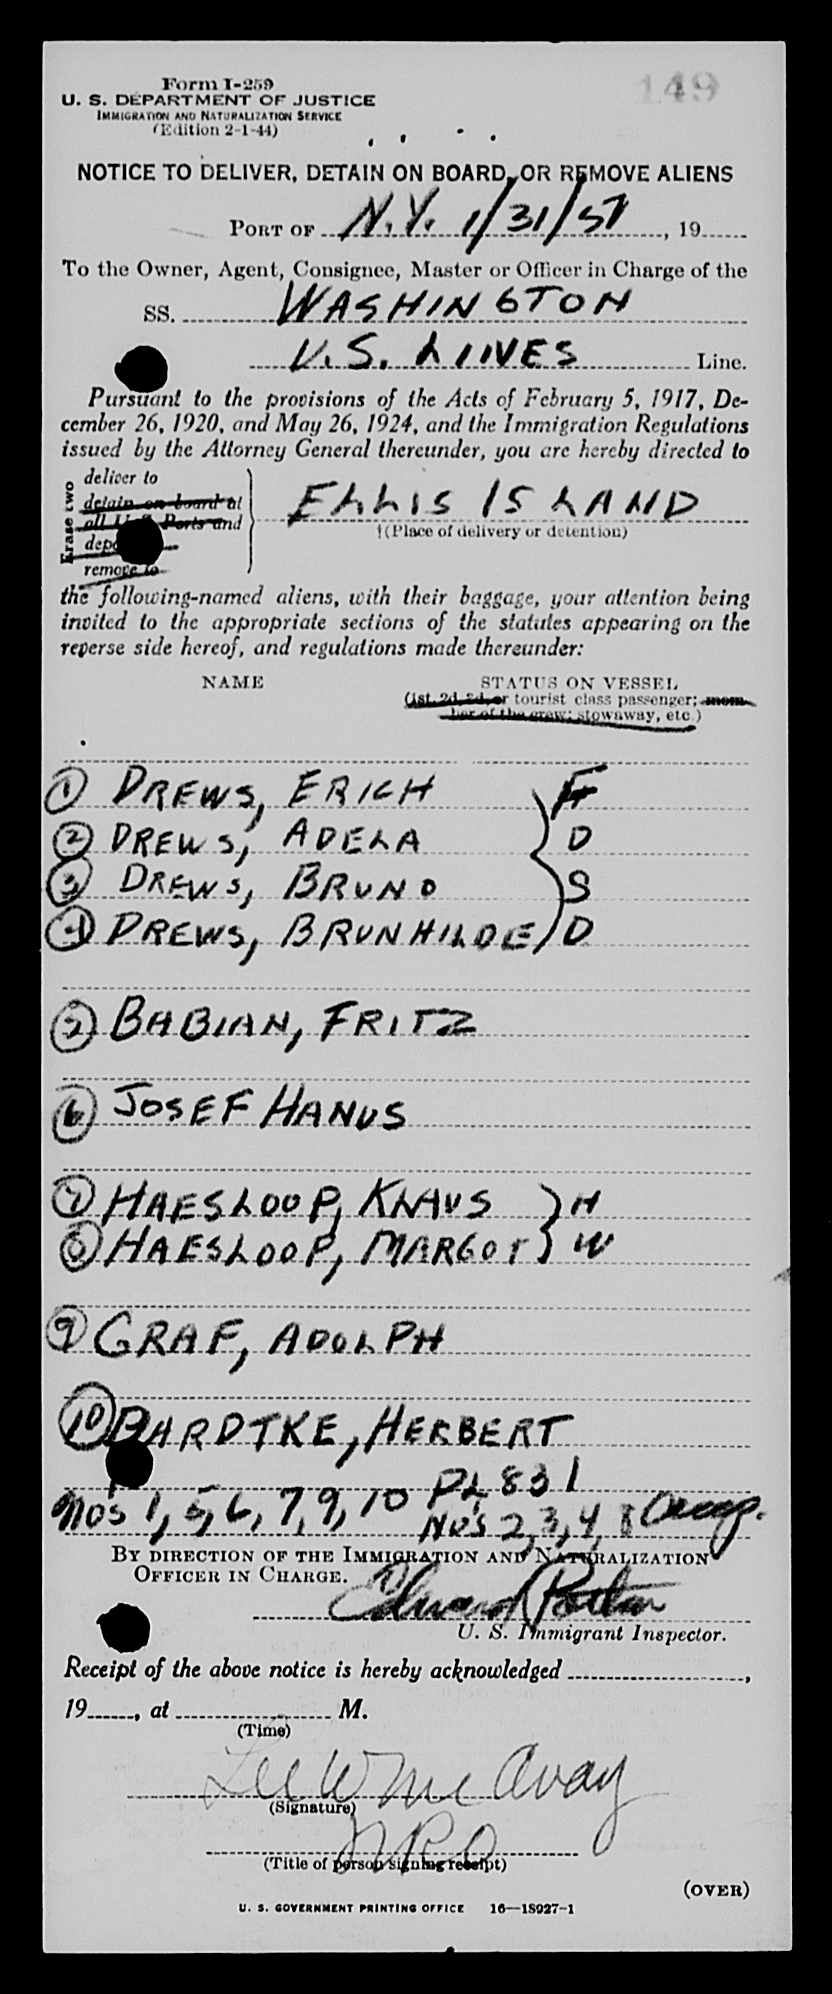 149
Form I-259
U. S. DEPARTMENT OF JUSTICE
IMMIGRATION AND NATURALIZATION SERVICE
(Edition 2-1-44)
NOTICE TO DELIVER, DETAIN ON BOARD, OR REMOVE ALIENS
PORT OF N.Y. 1/31/51, 19
To the Owner, Agent, Consignee, Master or Officer in Charge of the
SS. WASHINGTON
U.S. LINES Line.
Pursuant to the provisions of the Acts of February 5, 1917, De-
cember 26, 1920, and May 26, 1924, and the Immigration Regulations
issued by the Attorney General thereunder, you are hereby directed to
Erase two
deliver to
detain on board at
all U. S. Ports and
remove to
ELLIS ISLAND
(Place of delivery or detention)
the following-named aliens, with their baggage, your attention being
invited to the appropriate sections of the statutes appearing on the
reverse side hereof, and regulations made thereunder:
NAME STATUS ON VESSEL
(1st, 2d, 3d, or tourist class passenger; mem-
ber of the crew; stowaway, etc.)
1 DREWS, ERICH F
2 DREWS, ADELA D
3 DREWS, BRUNO S
4 DREWS, BRUNHILDE D
5 BABIAN, FRITZ
6 JOSEF HANUS
7 HAESLOOP, KLAUS H
8 HAESLOOP, MARGOT W
9 GRAF, ADOLPH
10 BARDTKE, HERBERT
NOS 1, 5, 6, 7, 9, 10 PL 831
NOS 2, 3, 4, 8
BY DIRECTION OF THE IMMIGRATION AND NATURALIZATION
OFFICER IN CHARGE.
Edward
U. S. Immigrant Inspector.
Receipt of the above notice is hereby acknowledged ,
19 , at M.
(Time)
Lee W McAvay
(Signature)
(Title of person signing receipt)
(OVER)
U. S. GOVERNMENT PRINTING OFFICE 16—18927-1